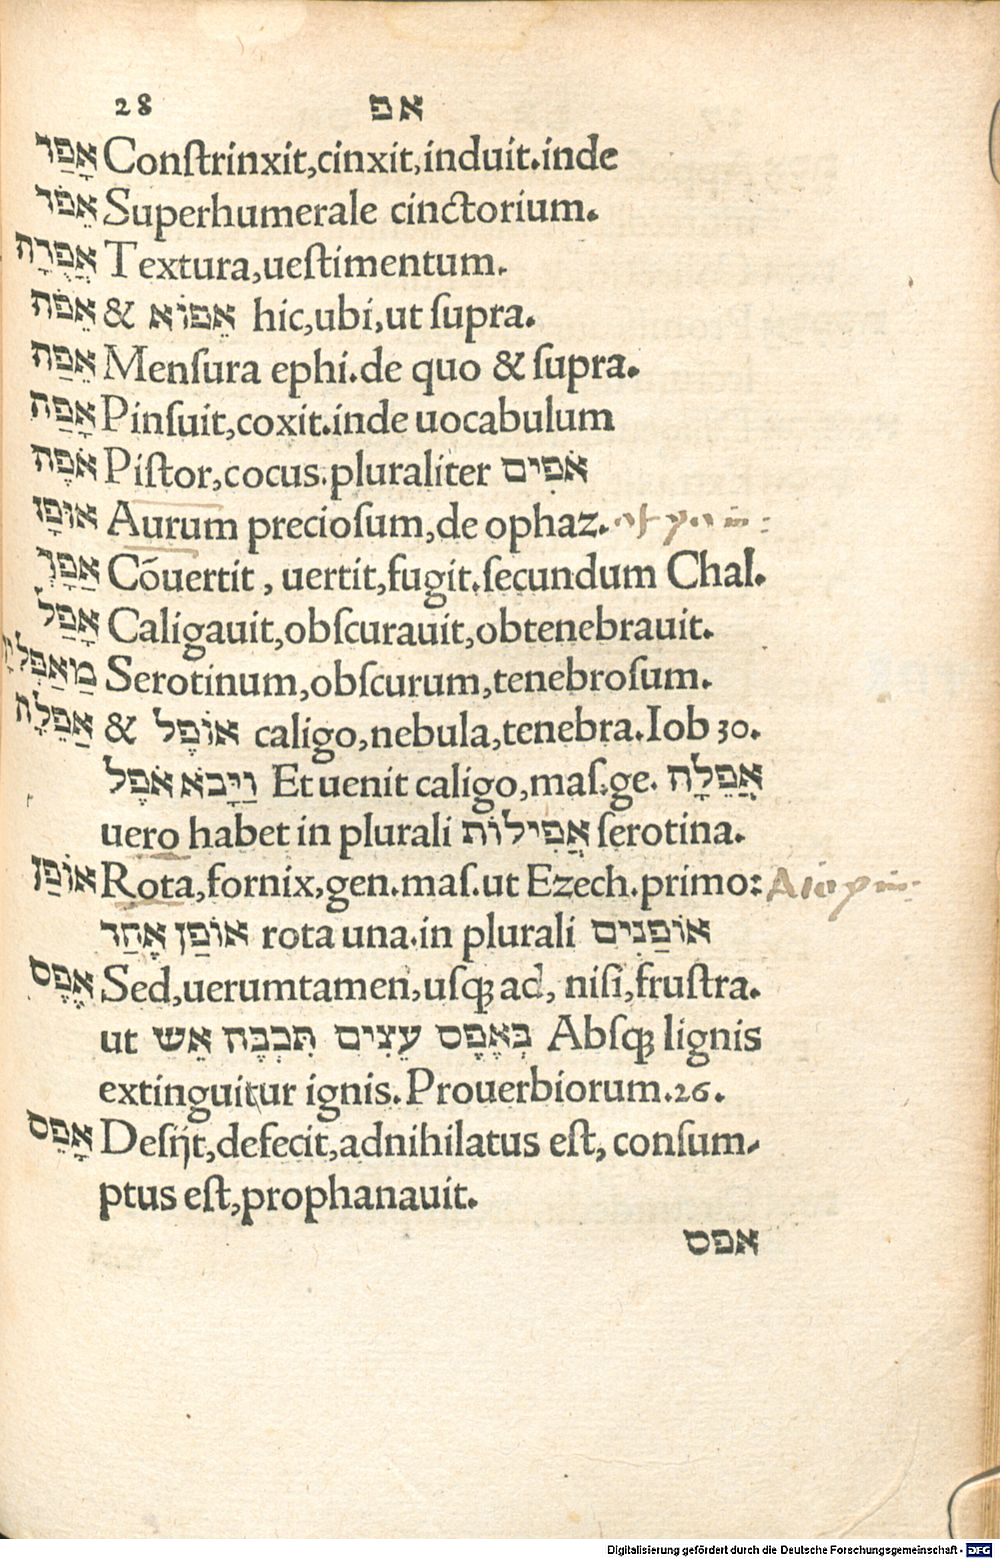 28 אפ
אָפַד Conſtrinxit,cinxit,induit.inde
אֵפֹד Superhumerale cinctorium.
אֲפֻדָה Textura,ueſtimentum.
אֵפֹה & אֵפוֹא hic,ubi,ut ſupra.
אֵפַה Menſura ephi.de quo & ſupra.
אָפַה Pinſuit,coxit.inde uocabulum
אֹפֶה Piſtor,cocus.pluraliter אֹפִים
Aurum precioſum,de ophaz.
Cōuertit, uertit,fugit.ſecundum Chal.
אָפַל Caligauit,obſcurauit,obtenebrauit.
Serotinum,obſcurum,tenebroſum.
אֲפֵלָה & אוֹפֶל caligo,nebula,tenebra.Iob 30.
וַיָּבֹא אֹפֶל Et uenit caligo,maſ.ge. אֲפֵלָה
uero habet in plurali אֲפִילוֹת ſerotina.
אוֹפַן Rota,fornix,gen.maſ.ut Ezech.primo:
אוֹפַן אֶחַד rota una.in plurali אוֹפַנִּים
אֶפֶס Sed,uerumtamen,uſq; ad, niſi,fruſtra.
ut בְּאֶפֶס עֵצִים תִּכְבֶּה אֵשׁ Abſq; lignis
extinguitur ignis.Prouerbiorum.26.
אָפֵס Deſijt,defecit,adnihilatus eſt, conſum-
ptus eſt,prophanauit.
אפס
Digitalisierung gefördert durch die Deutsche Forschungsgemeinschaft - DFG